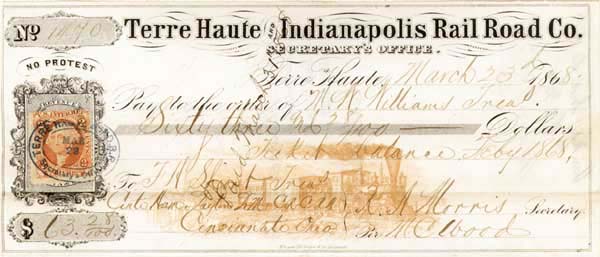 No 1470
Terre Haute AND Indianapolis Rail Road Co.
SECRETARY'S OFFICE.
NO PROTEST
Terre Haute, March 23 1868
Pay to the order of Williams Treas.
Sixty three 28/100 Dollars
Ticket balance Feby 1868,
U.S. INTER. REV.
TERRE HAUTE
MAR
23
To F. H. Short Treas
Cin. Ham. & Dayton
Cincinnati Ohio
R. A. Morris Secretary
Per McElwood
$ 63.28/100